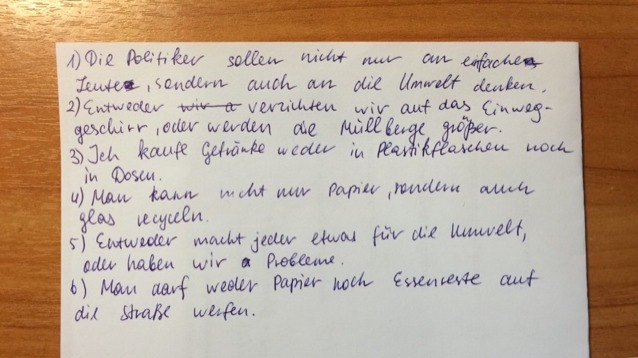 1) Die Politiker sollen nicht nur an einfache
Leute, sondern auch an die Umwelt denken.
2) Entweder wir a verzichten wir auf das Einweg-
geschirr, oder werden die Müllberge größer.
3) Ich kaufe Getränke weder in Plastikflaschen noch
in Dosen.
4) Man kann nicht nur Papier, sondern auch
glas recyceln.
5) Entweder macht jeder etwas für die Umwelt,
oder haben wir Probleme.
6) Man darf weder Papier noch Essenreste auf
die Straße werfen.